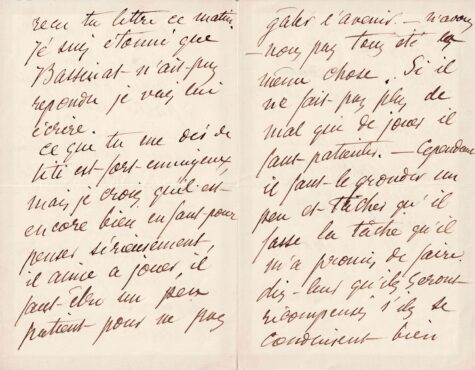 reçu ta lettre ce matin.
Je suis étonné que
n'ait pas
repondu je vais lui
écrire.
Ce que tu me dis de
titi est fort ennuyeux
mais je crois qu'il est
encore bien enfant pour
penser sérieusement,
il aime a jouer, il
faut être un peu
patient pour ne pas
gâter l'avenir. — n'avons
-nous pas tous été la
même chose. Si il
ne fait pas plus de
mal que de jouer il
faut patienter. — Cependant
il faut le gronder un
peu et tâcher qu'il
fasse la tâche qu'il
m'a promis de faire.
dis-leur qu'ils seront
recompensés s'ils se
conduisent bien